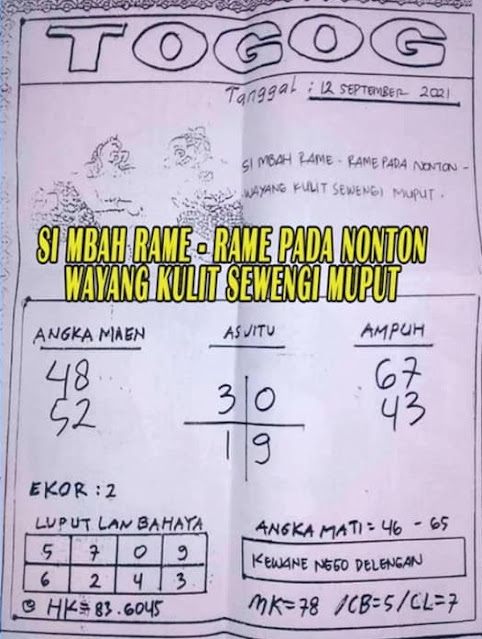 TOGOG
Tanggal : 12 SEPTEMBER 2021
SI MBAH RAME - RAME PADA NONTON -
WAYANG KULIT SEWENGI MUPUT .
SI MBAH RAME - RAME PADA NONTON
WAYANG KULIT SEWENGI MUPUT
ANGKA MAEN
ASJITU
AMPUH
48
52
3 0
1 9
67
43
EKOR : 2
LUPUT LAN BAHAYA
5 7 0 9
6 2 4 3
HK= 83.6045
ANGKA MATI = 46 - 65
KEWANE NGGO DELENGAN
MK=78 /CB=5/CL=7